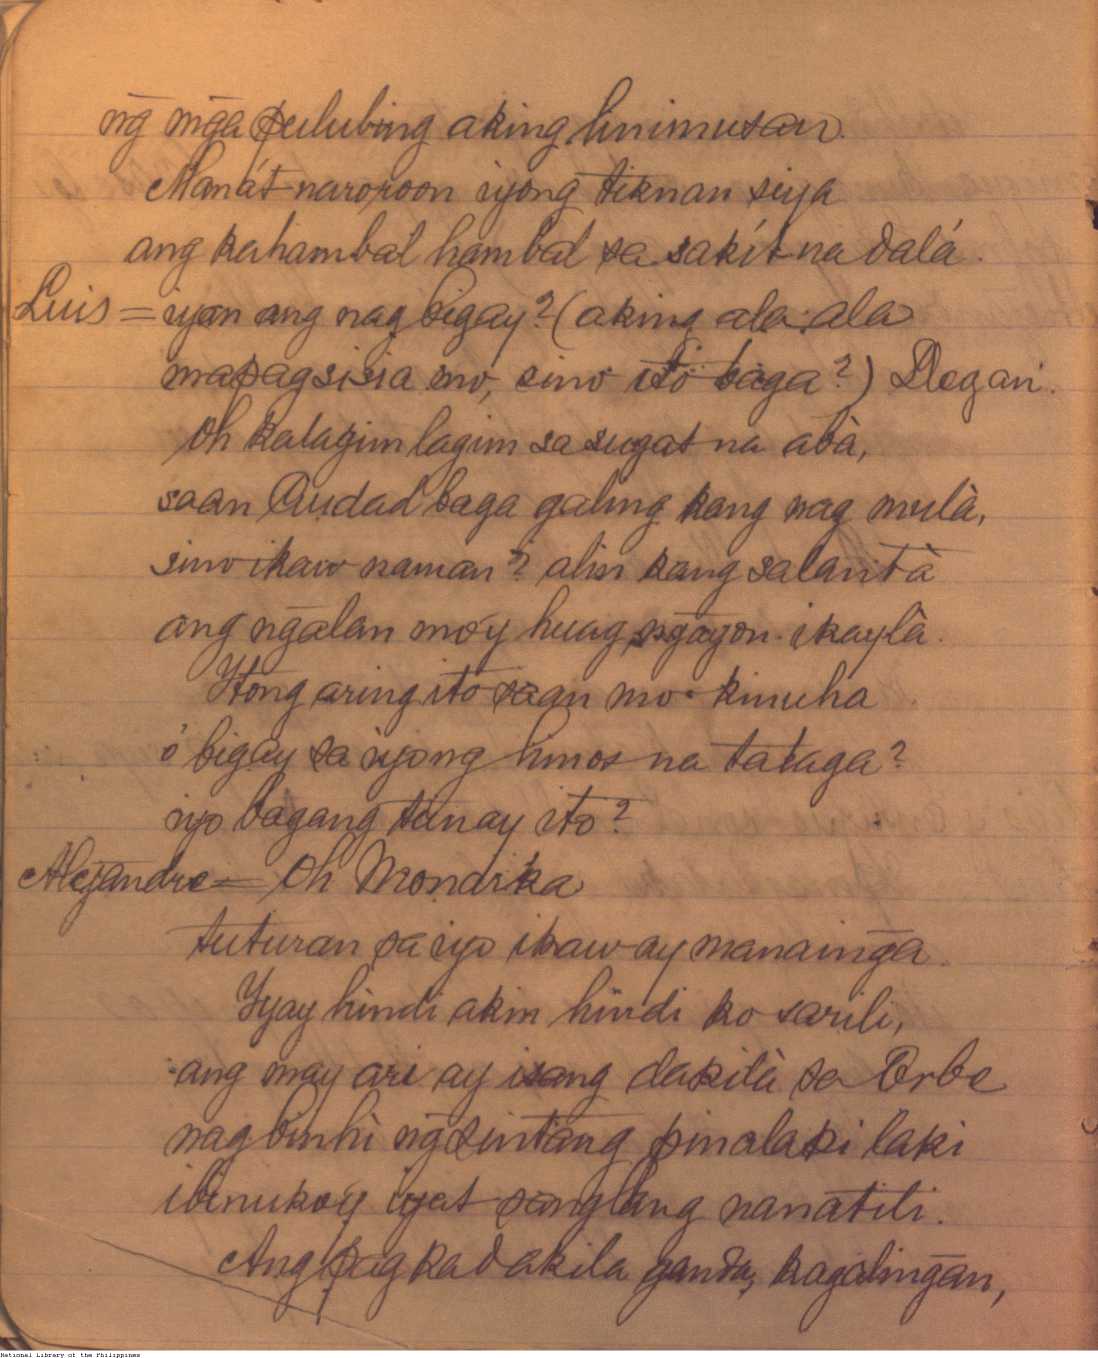 ng̃ mg̃a pulubing aking linimusan.
Mana't naroroon iyong tiknan siya
ang kahambal hambal sa sakít na dalá.
Luis = iyan ang nag bigay? (aking ala-ala
mapagsisia mo, sino itó baga?) Llegan.
Oh kalagim lagim sa sugat na abà,
saan Ciudad baga galing kang nag mulà,
sino ikaw naman? alin kang salantà
ang ng̃alan mo'y huag ng̃ayon ikaylà.
Ytong aring ito saan mo kinuha
ó bigay sa iyong limos na talaga?
iyo bagang tunay ito?
Alejandro = Oh Monarka
tuturan sa iyo ikaw ay manaing̃a.
Yyay hindi akin hindi ko sarili,
ang may ari ay isang dakilà sa Orbe
nag binhì ng̃ sintang pinalaki laki
ibinukóy iyat sanglang nanatili.
Ang pag ka dakila ganda, kagaling̃an,
National Library of the Philippines